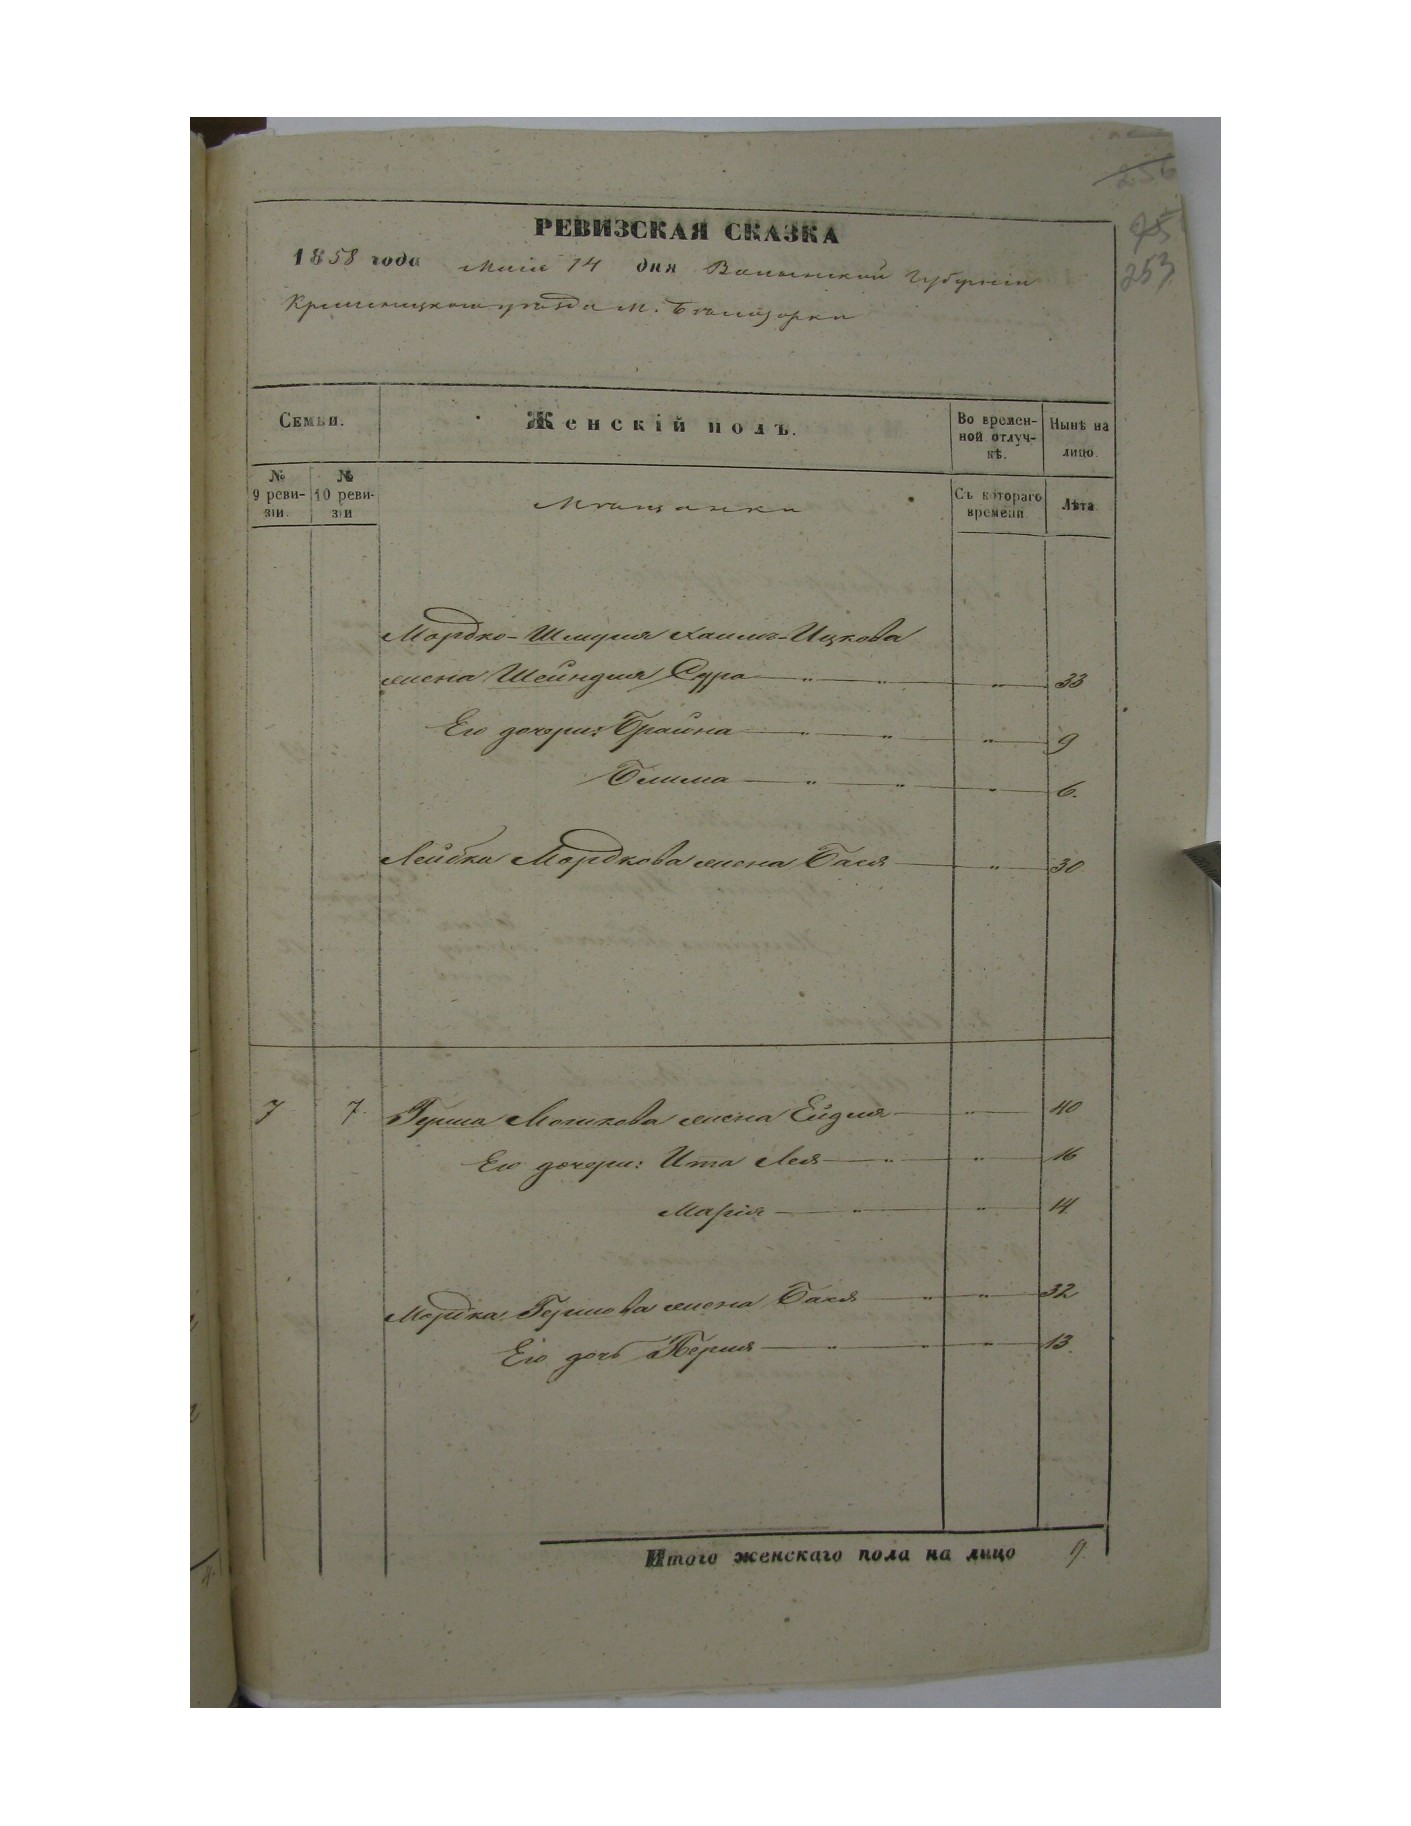 256
95
253
РЕВИЗСКАЯ СКАЗКА
1858 года Маія 14 дня Волынской Губерніи
Кременецкого уезда М. Белозорки
Семьи.
Женскій полъ.
Во времен-
ной отлуч-
кѣ.
Нынѣ на
лицо.
№
9 реви-
зіи.
№
10 реви-
зіи
Мещанки
Съ котораго
времени
Лѣта
Мордко-Шмуля Хаимъ-Ицкова
жена Шейндля Сура — " — " — " — 33
Его дочери: Брайна — " — " — " — 9
Блима — " — " — " — 6.
Лейбки Мордкова жена Бася — " — 30
7 7. Герша Мошкова жена Ейдля — " — 40
Его дочери: Ита Лея — " — " — 16
Марія — " — " — 14
Мордка Гершова жена Бася — " — " — 32
Его дочь Перля — " — " — " — 13.
Итого женскаго пола на лицо 9.